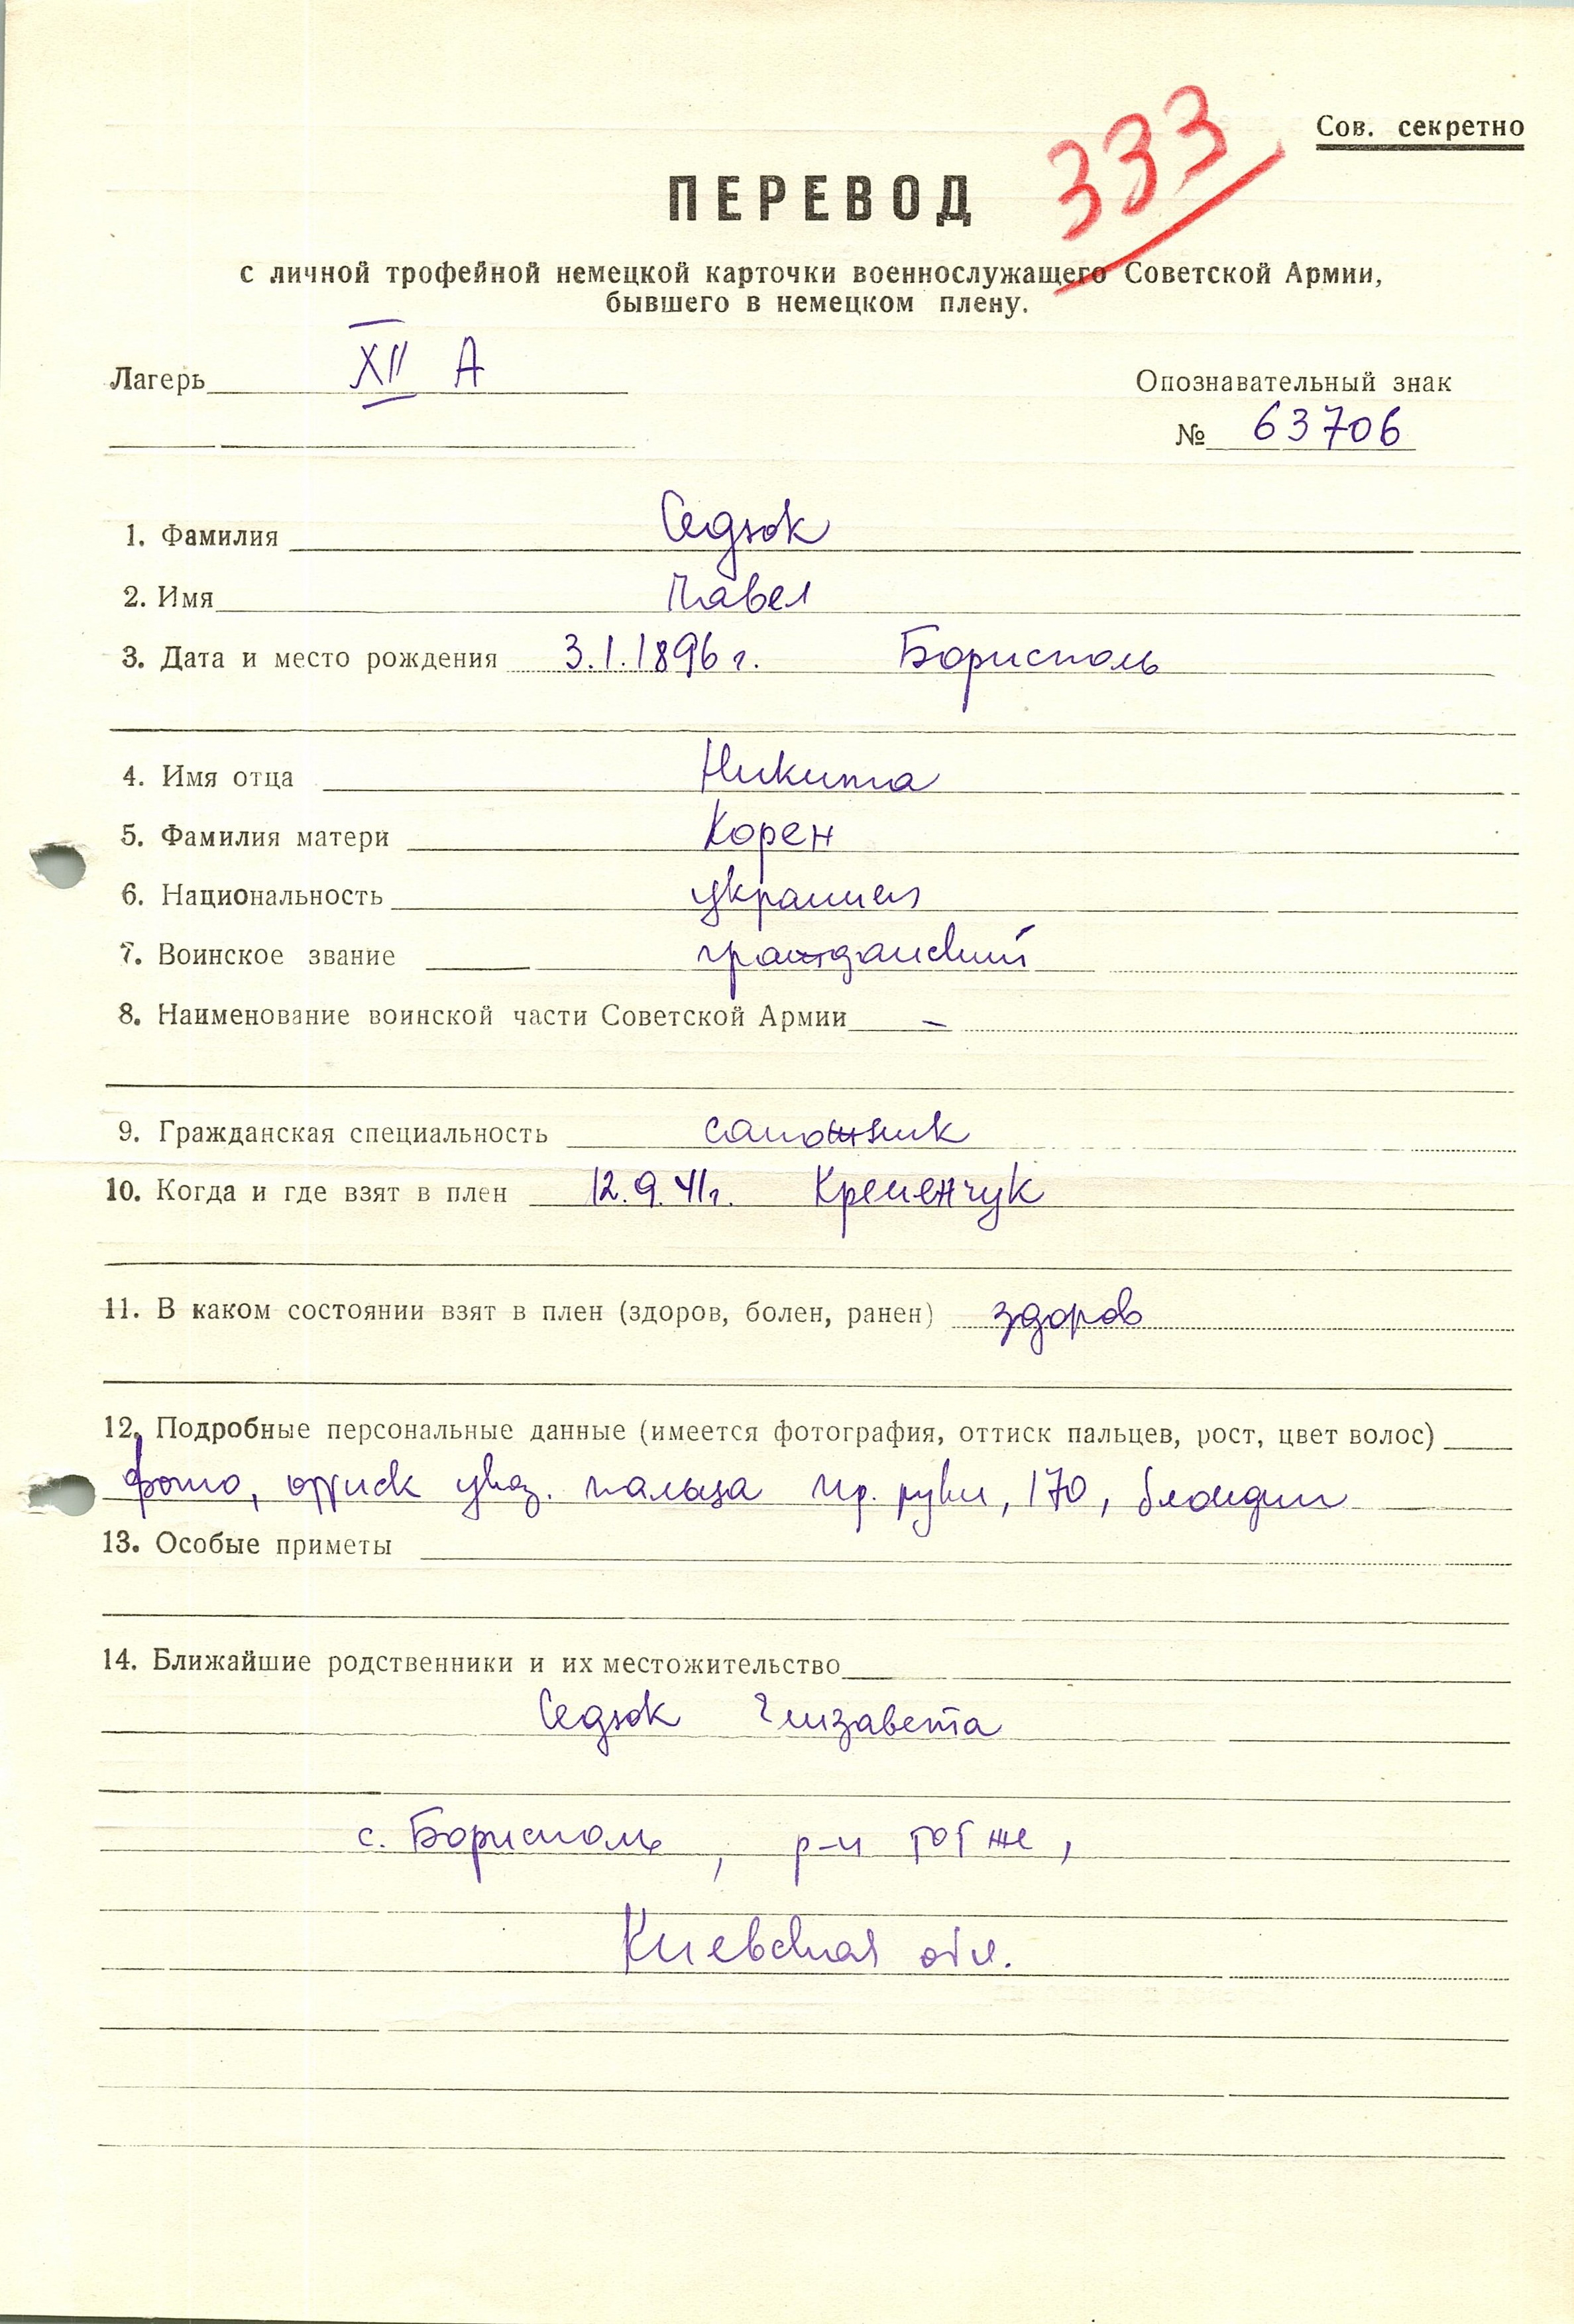 333
Сов. секретно
ПЕРЕВОД
с личной трофейной немецкой карточки военнослужащего Советской Армии,
бывшего в немецком плену.
Лагерь XII А
Опознавательный знак
№ 63706
1. Фамилия Седзок
2. Имя Павел
3. Дата и место рождения 3.1.1896 г. Борисполь
4. Имя отца Никита
5. Фамилия матери Корен
6. Национальность украинец
7. Воинское звание гражданский
8. Наименование воинской части Советской Армии –
9. Гражданская специальность сапожник
10. Когда и где взят в плен 12.9.41г. Кременчук
11. В каком состоянии взят в плен (здоров, болен, ранен) здоров
12. Подробные персональные данные (имеется фотография, оттиск пальцев, рост, цвет волос)
фото, оттиск указ. пальца пр. руки, 170, блондин
13. Особые приметы
14. Ближайшие родственники и их местожительство
Седзок Елизавета
с. Борисполь, р-н тот же,
Киевская обл.